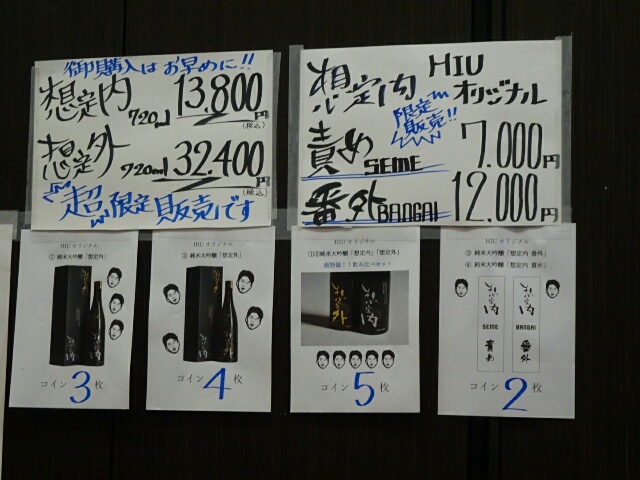 御購入はお早めに!!
想定内 720ml 13,800円
(税込)
想定外 720ml 32,400円
(税込)
超限定販売です
想定内 HIU オリジナル
限定販売!!
責め SEME 7,000円
番外 BANGAI 12,000円
HIUオリジナル
① 純米大吟醸「想定内」
想定内
コイン3枚
HIUオリジナル
② 純米大吟醸「想定外」
想定外
コイン4枚
HIUオリジナル
①②純米大吟醸「想定内」「想定外」
超特価!!飲み比べセット
想定外 想定内
コイン5枚
HIUオリジナル
③ 純米大吟醸「想定内 番外」
④ 純米大吟醸「想定内 責め」
想定内 想定内
SEME BANGAI
責め 番外
コイン2枚